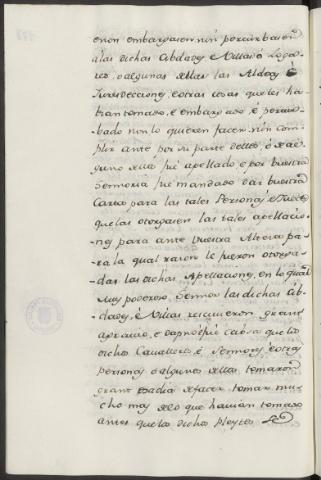 enon embargasen nin porcurbasen
a las dichas Cibdades e Villas ò Loga-
res, o algunas dellas las Aldeas è
Jurisdecciones, e otras cosas que les ha-
bian tomado, e embargado, è porcur-
bado non lo quieren facer, nin com-
plir ante por su parte dellos, ò de al-
guno dellos fue apellado e por vuestra
Señoria fue mandado dar vuestra
Carta para las tales Personas e Jueces
que las otorgasen las tales apellacio-
nes para ante vuestra Alteza pa-
ra la qual razon le fueron otorga-
das las dichas Apellaciones, en lo qual
muy poderoso Señor las dichas cib-
dades, e Villas rescivieron grant
agravio, e dapno, è fue causa que los
dichos Cavalleros, è Señores, è otras
personas, o algunos dellos tomaron
grant osadia de facer tomar mu-
cho mas de lo que havian tomado
antes que los dichos pleytos